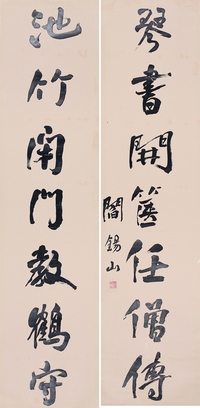 琴書開篋任僧傳
閻錫山
池竹閉門教鶴守